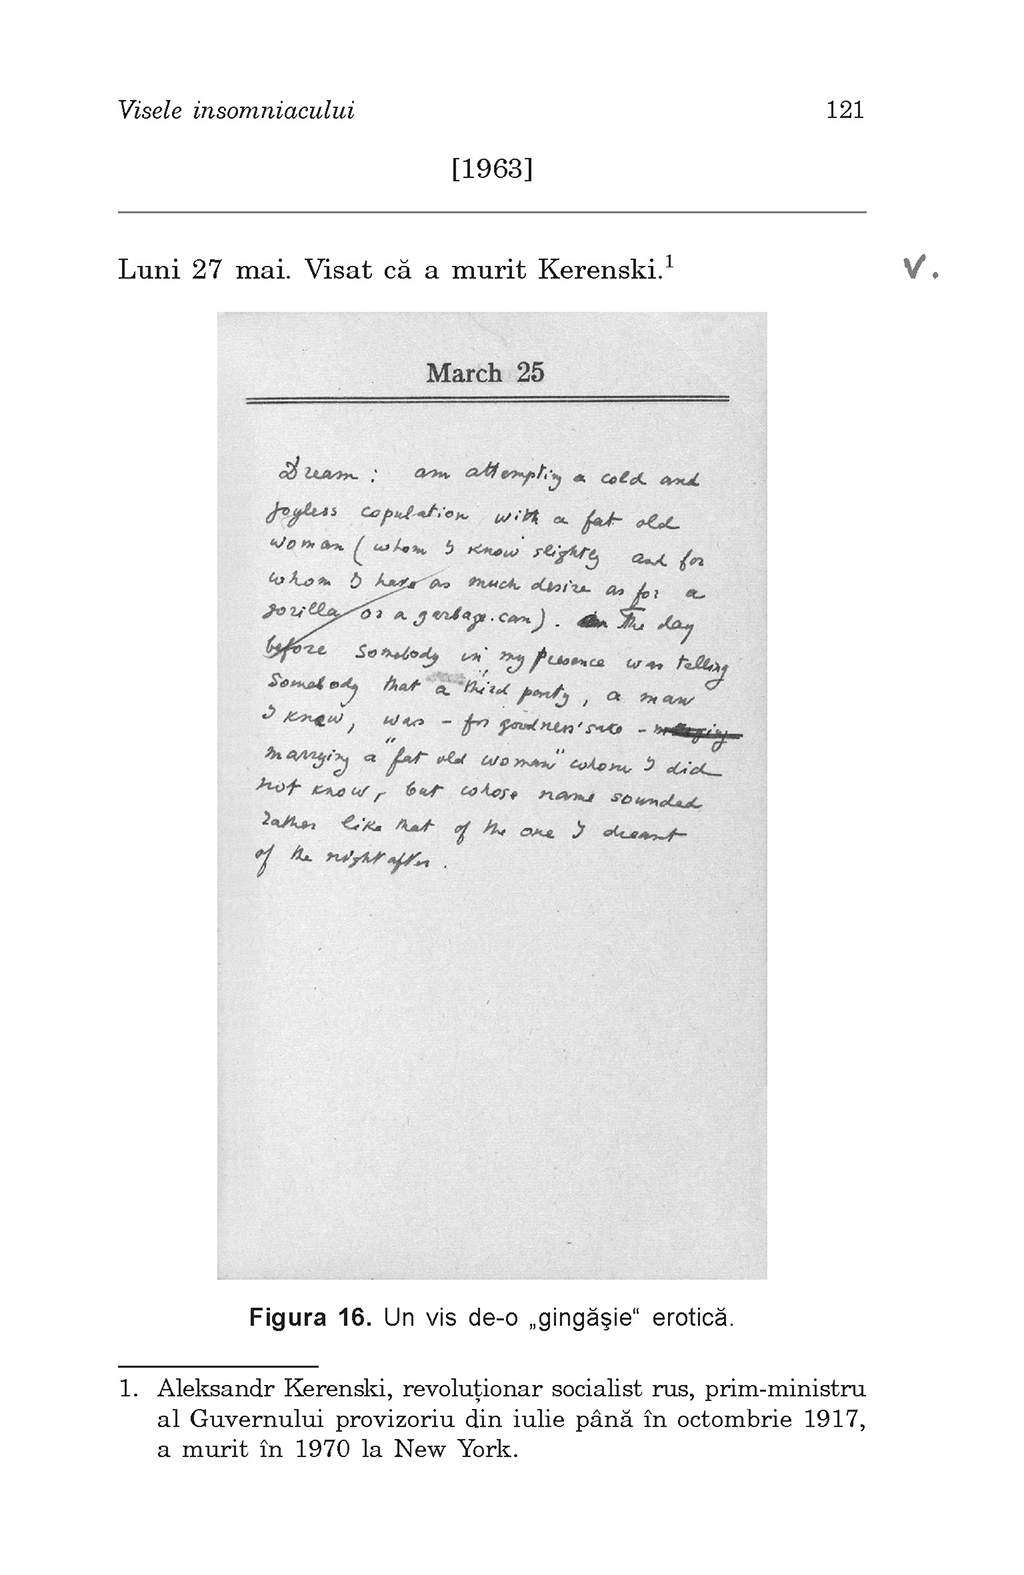 Visele insomniacului 121
[1963]
Luni 27 mai. Visat că a murit Kerenski.¹ V.
March 25
Dream : am attempting a cold and
joyless copulation with a fat old
woman ( whom I know slightly and for
whom I have as much desire as for a
gorilla or a garbage-can ) . The day
before somebody in my presence was telling
somebody that a third party , a man
I knew , was – for goodness' sake –
marrying a "fat old woman" whom I did
not know , but whose name sounded
rather like that of the one I dreamt
of the night after .
Figura 16. Un vis de-o „gingăşie“ erotică.
1. Aleksandr Kerenski, revoluționar socialist rus, prim-ministru
al Guvernului provizoriu din iulie până în octombrie 1917,
a murit în 1970 la New York.